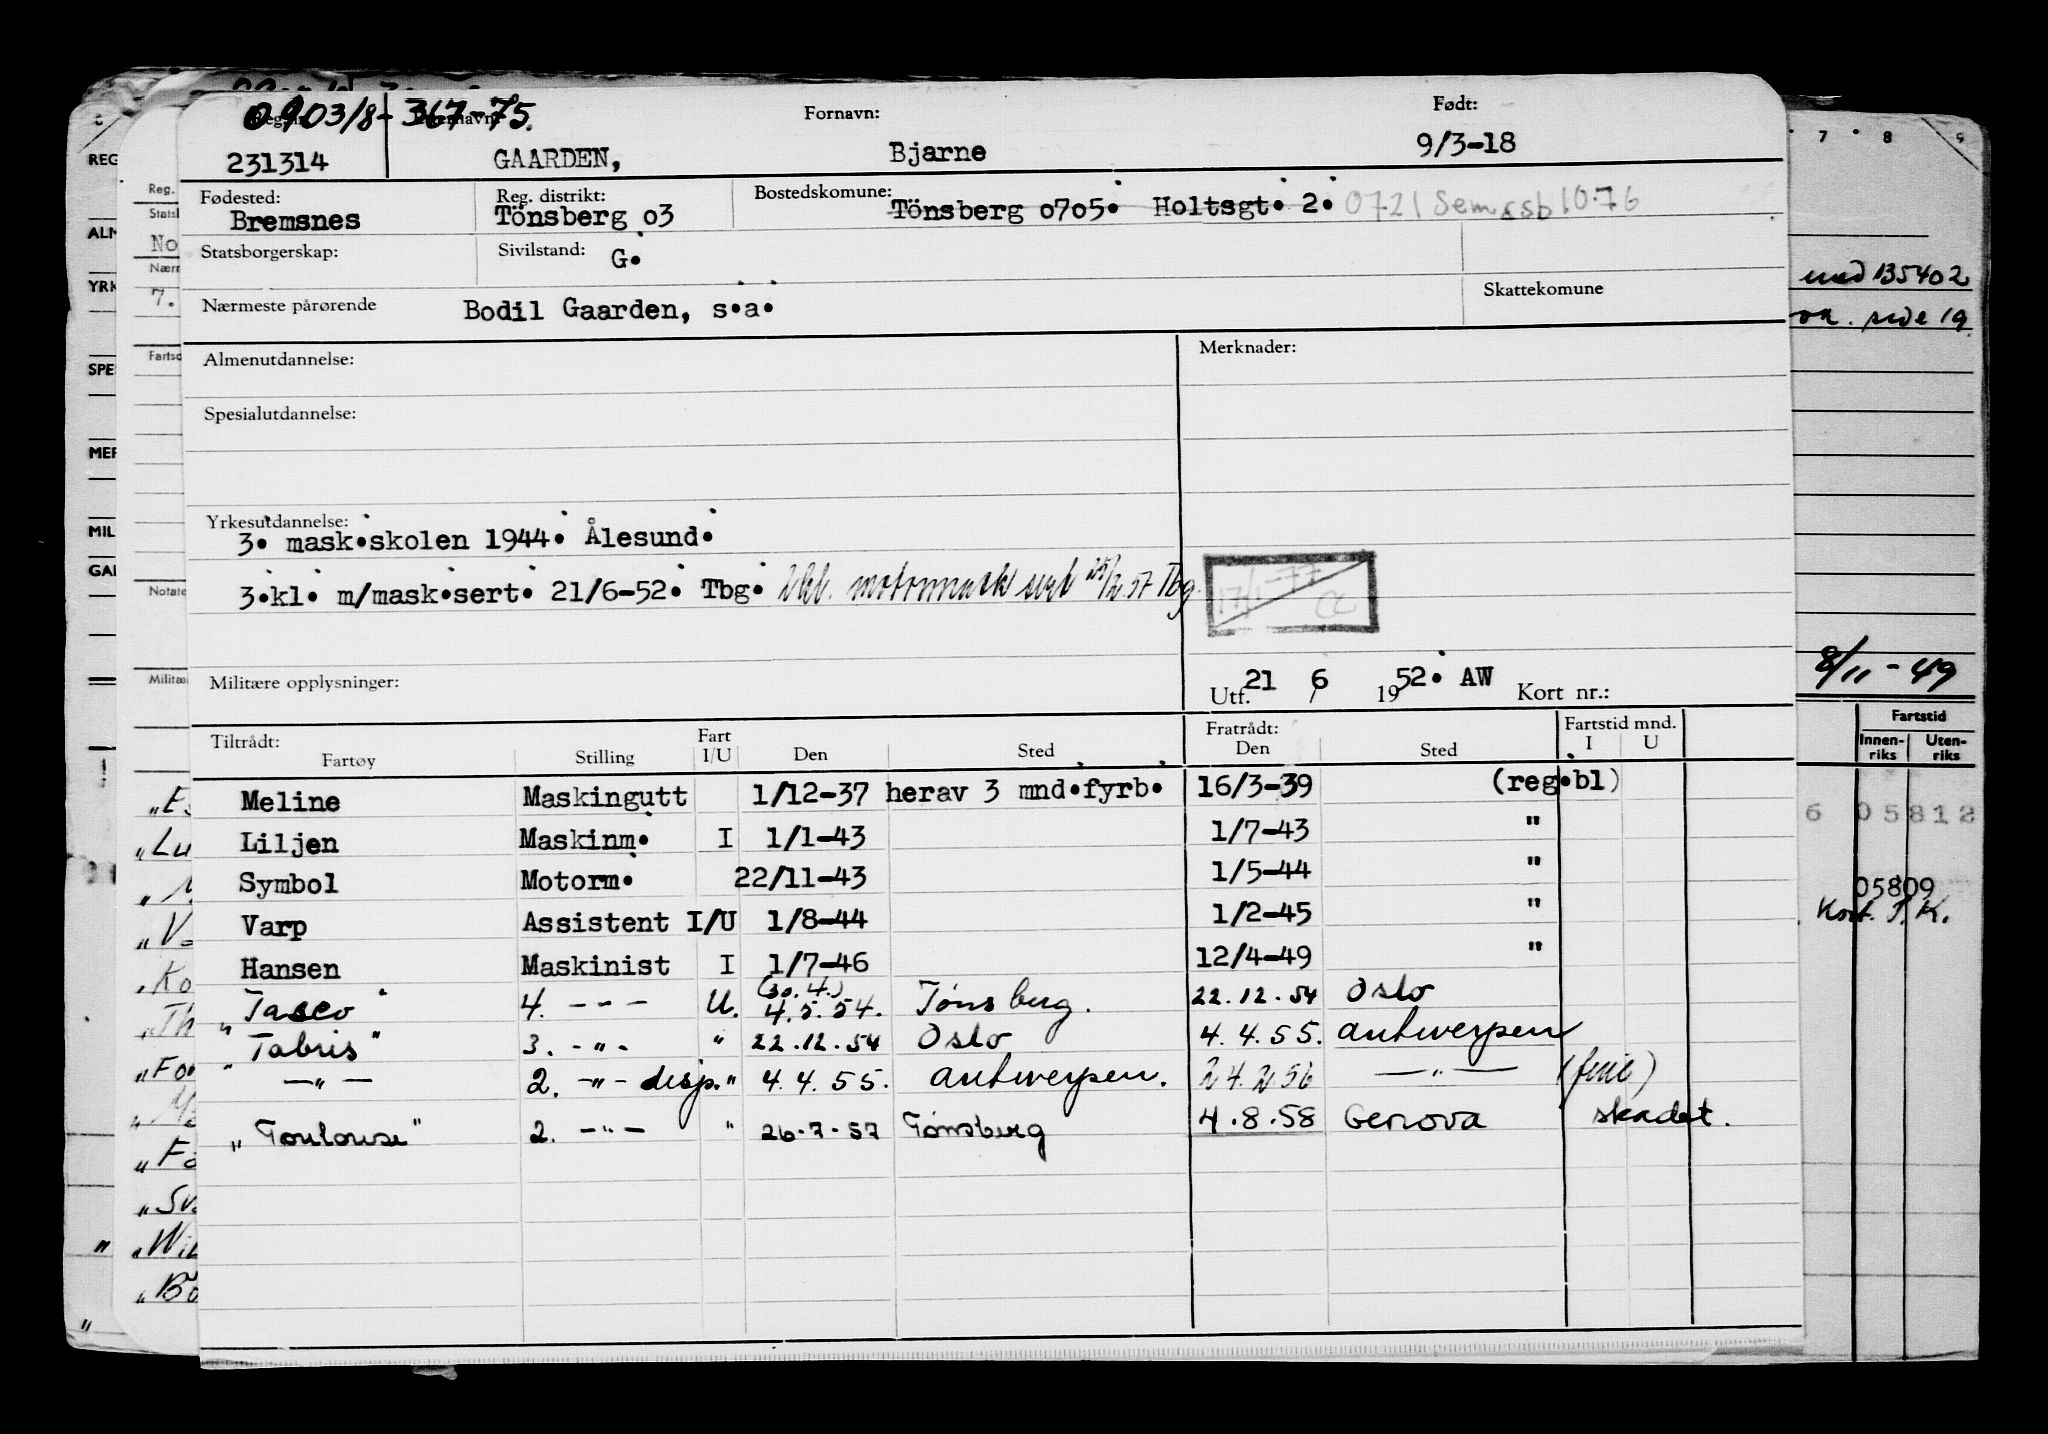 0903/8-367-75.
Fornavn: Født:
231314 GAARDEN, Bjarne 9/3-18
Fødested: Reg. distrikt: Bostedskomune:
Bremsnes Tönsberg 03 Tönsberg 0705. Holtsgt. 2. 0721 Sem ssb 10.76
Statsborgerskap: Sivilstand: G.
Nærmeste pårørende Bodil Gaarden, s.a. Skattekomune
Almenutdannelse: Merknader:
Spesialutdannelse:
Yrkesutdannelse:
3. mask.skolen 1944. Ålesund.
3.kl. m/mask.sert. 21/6-52. Tbg. 2kl. motormask sert 25/2 57 Tbg.
17/1-77 CL
Militære opplysninger: Utf. 21 / 6 1952. AW Kort nr.:
Tiltrådt: Fratrådt: Fartstid mnd.
Fartøy Stilling Fart I/U Den Sted Den Sted I U
Meline Maskingutt 1/12-37 herav 3 mnd.fyrb. 16/3-39 (reg.bl)
Liljen Maskinm. I 1/1-43 1/7-43 "
Symbol Motorm. 22/11-43 1/5-44 "
Varp Assistent I/U 1/8-44 1/2-45 "
Hansen Maskinist I 1/7-46 12/4-49 "
(30.4.)
"Tasco" 4. -"- U. 4.5.54. Tønsberg. 22.12.54 Oslo
"Tabris" 3. -"- " 22.12.54 Oslo 4.4.55. Antwerpen
" -"- 2. -"- disp. " 4.4.55. Antwerpen. 24.2.56 -"- (ferie)
"Toulouse" 2. -"- " 26.7.57 Tønsberg 4.8.58 Genova skadet.
REG
ALM
YRK
SPE
MER
MIL
GAR
Reg.
Statsb
No
Nærm
7.
Notate
Militæ
7 8 9
med 135402
side 19
8/11-49
Fartstid
Innen-riks Uten-riks
6 05812
05809
Kort. P.K.